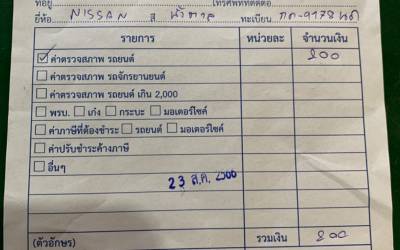 ที่อยู่ โทรศัพท์ที่ติดต่อ
ยี่ห้อ NISSAN สี น้ำตาล ทะเบียน กก-9178
รายการ หน่วยละ จำนวนเงิน
ค่าตรวจสภาพ รถยนต์ 200
ค่าตรวจสภาพ รถจักรยานยนต์
ค่าตรวจสภาพ รถยนต์ เกิน 2,000
พรบ. เก๋ง กระบะ มอเตอร์ไซค์
ค่าภาษีที่ต้องชำระ รถยนต์ มอเตอร์ไซค์
ค่าปรับชำระค้างภาษี
อื่นๆ
23 ส.ค. 2566
(ตัวอักษร) รวมเงิน 200